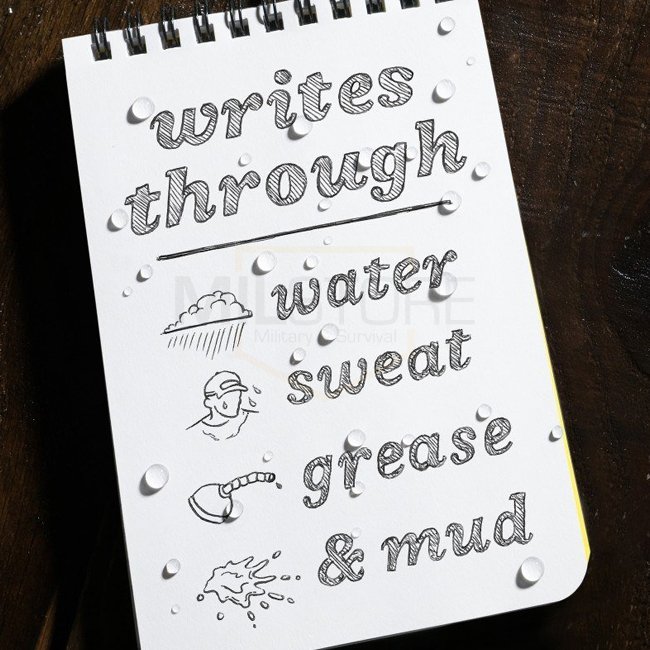 writes
through
water
MILSTORE
Military Survival
sweat
grease
& mud